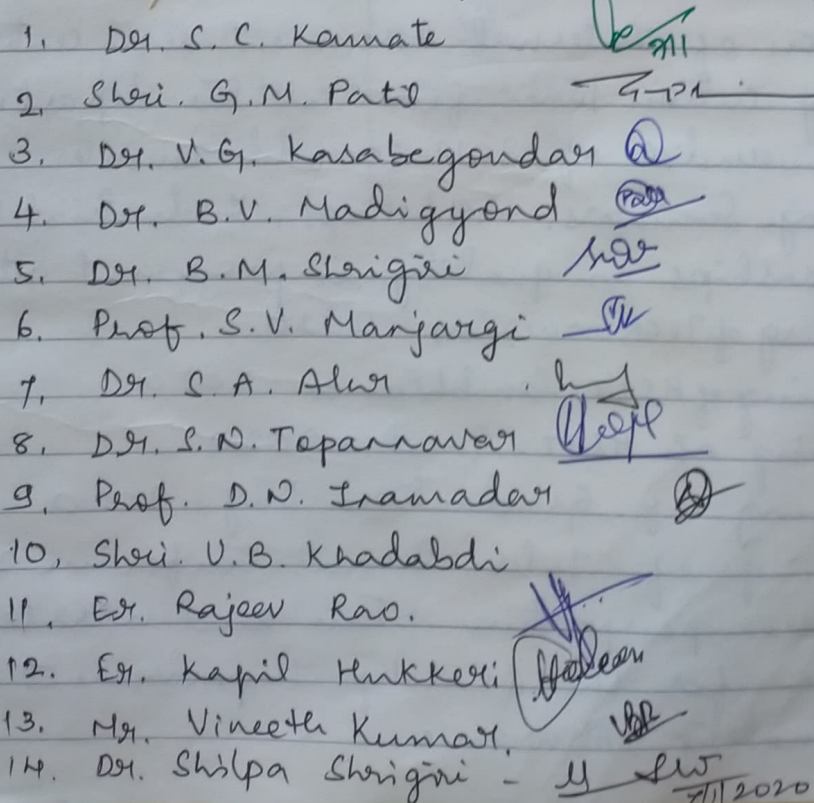 1. Dr. S. C. Kamate
2. Shri. G. M. Patil
3. Dr. V. G. Kasabegoudar
4. Dr. B. V. Madigyond
5. Dr. B. M. Shrigiri
6. Prof. S. V. Manjargi
7. Dr. S. A. Alur
8. Dr. S. N. Topannavar
9. Prof. D. N. Inamadar
10, Shri. V. B. Khadabdi
11. Er. Rajeev Rao.
12. Er. Kapil Hukkeri
13. Mr. Vineeth Kumar.
14. Dr. Shilpa Shrigiri -
2020